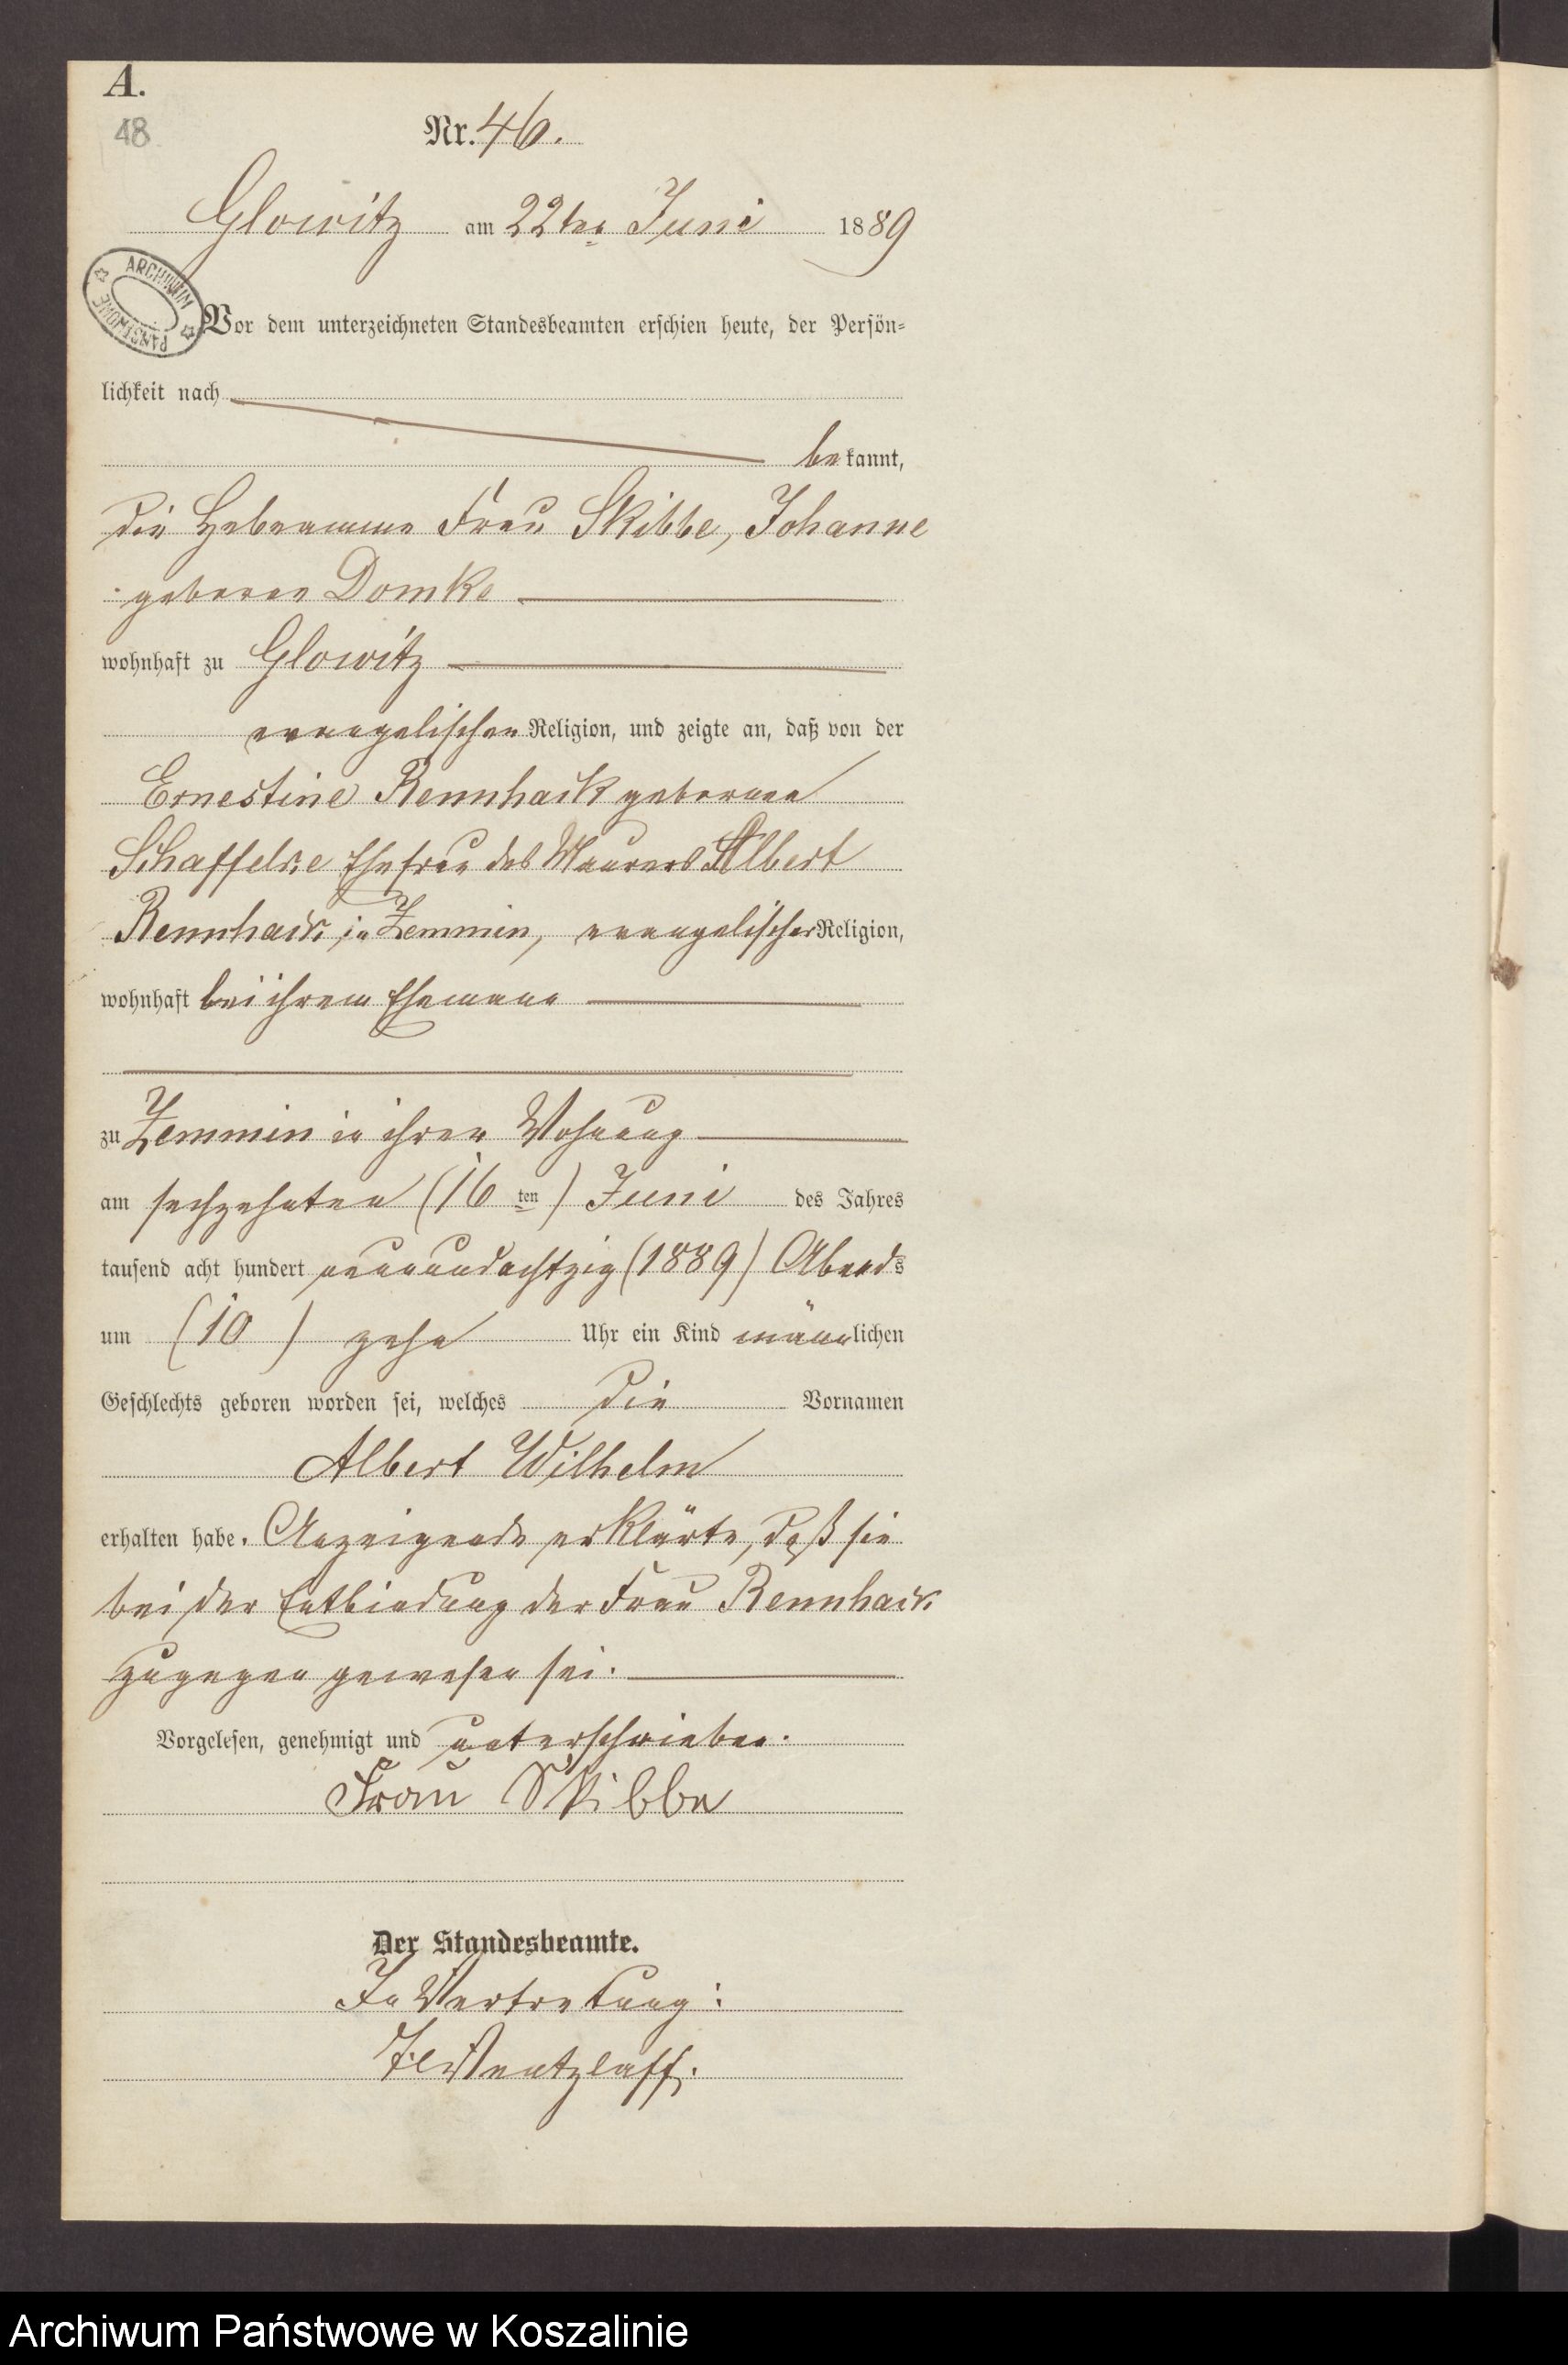 A.
48
Nr. 46.
Glowitz am 22ten Juni 1889
ARCHIWUM PAŃSTWOWE
Vor dem unterzeichneten Standesbeamten erschien heute, der Persön-
lichkeit nach
bekannt,
die Hebeamme Frau Skibbe, Johanne
geboren Domke
wohnhaft zu Glowitz
evangelischen Religion, und zeigte an, daß von der
Ernestine Rennhack geborenen
Schaffelke Ehefrau des Maurers Albert
Rennhack in Zemmin, evangelischer Religion,
wohnhaft bei ihrem Ehemann
zu Zemmin in ihrer Wohnung
am sechzehnten (16 ten) Juni des Jahres
tausend acht hundert neunundachtzig (1889) Abends
um (10) zehn Uhr ein Kind männlichen
Geschlechts geboren worden sei, welches die Vornamen
Albert Wilhelm
erhalten habe. Anzeigende erklärte, daß sie
bei der Entbindung der Frau Rennhack
zugegen gewesen sei.
Vorgelesen, genehmigt und unterschrieben.
Frau Skibbe
Der Standesbeamte.
In Vertretung:
Wentzlaff.
Archiwum Państwowe w Koszalinie